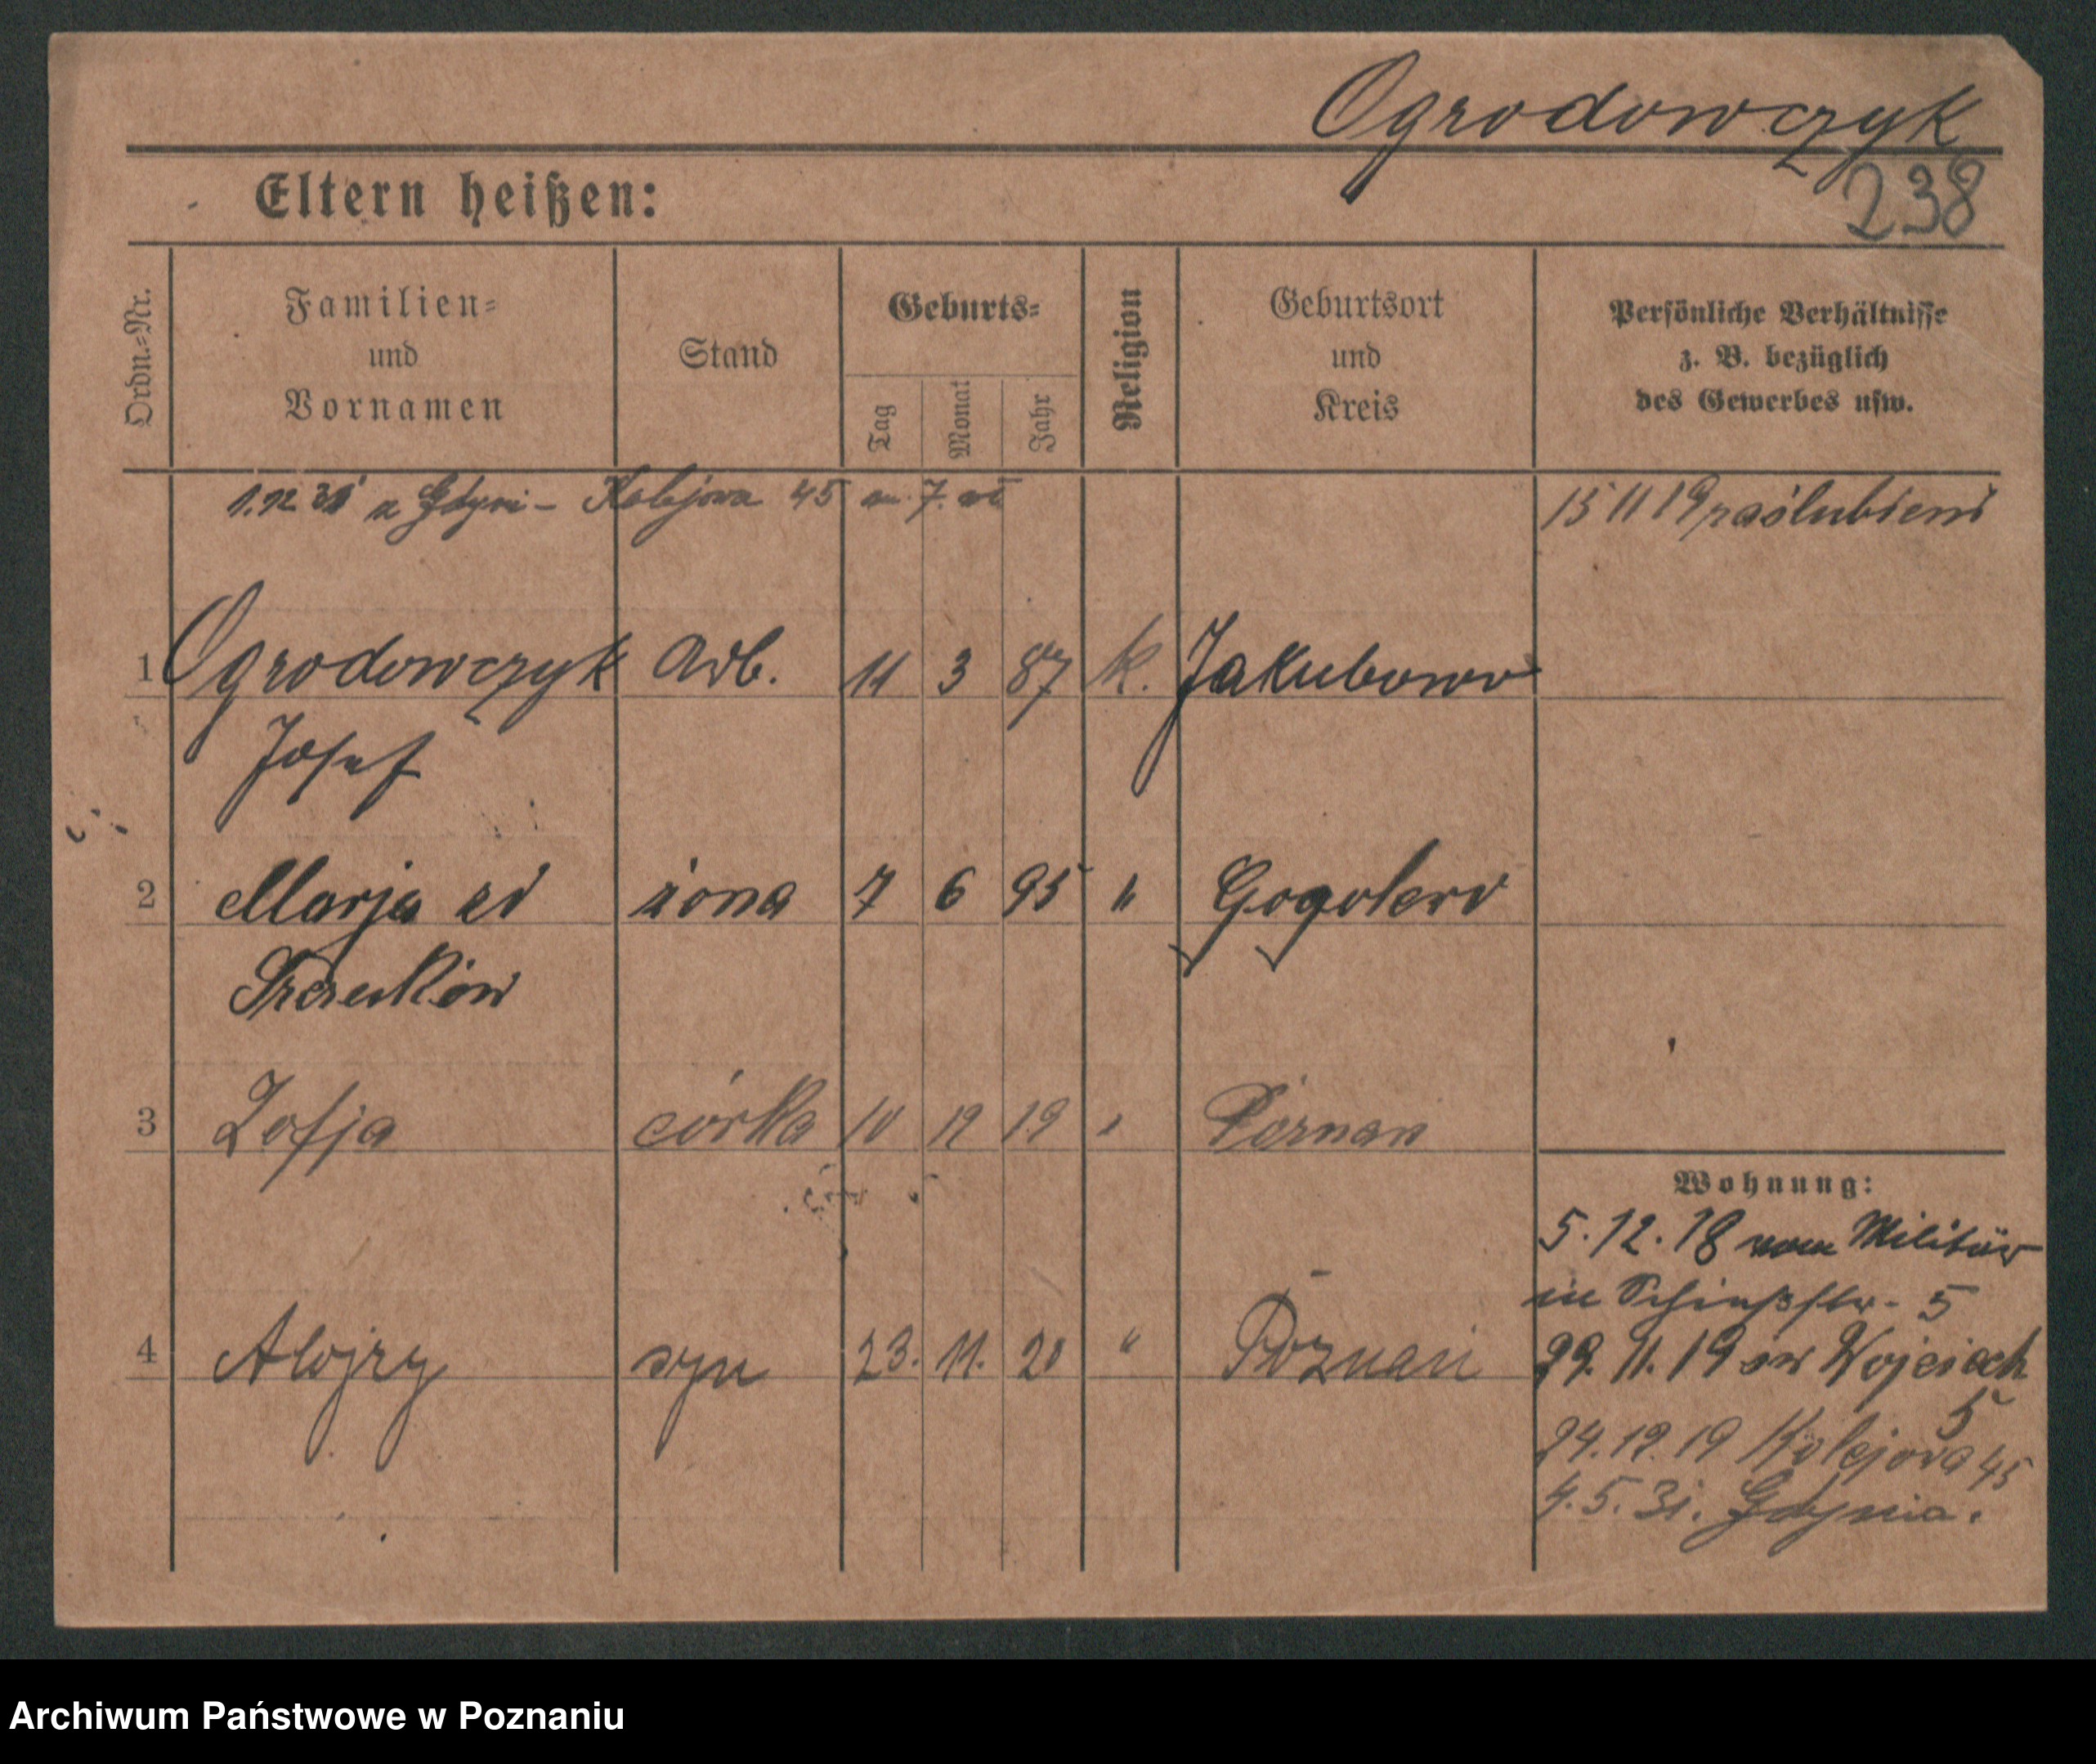 Ogrodowczyk
Eltern heißen:
238
Ordn.-Nr.
Familien-
und
Vornamen
Stand
Geburts-
Tag
Monat
Jahr
Religion
Geburtsort
und
Kreis
Persönliche Verhältnisse
z. B. bezüglich
des Gewerbes usw.
1.12.31 z Gdyni - Kolejowa 45 m. 7.
15 11 19 zaślubieni
1 Ogrodowczyk Arb. 11 3 87 k. Jakubowo
Josef
2 Marja żona 7 6 95 " Gogolewo
3 Zofja córka 10 12 19 " Poznań
Wohnung:
5.12.18 vom Militär
in Schießstr. 5
4 Alojzy syn 23. 11. 20 " Poznań
29. 11. 19 św Wojciech
5
24.12.19 Kolejowa 45
4.5.31. Gdynia.
Archiwum Państwowe w Poznaniu